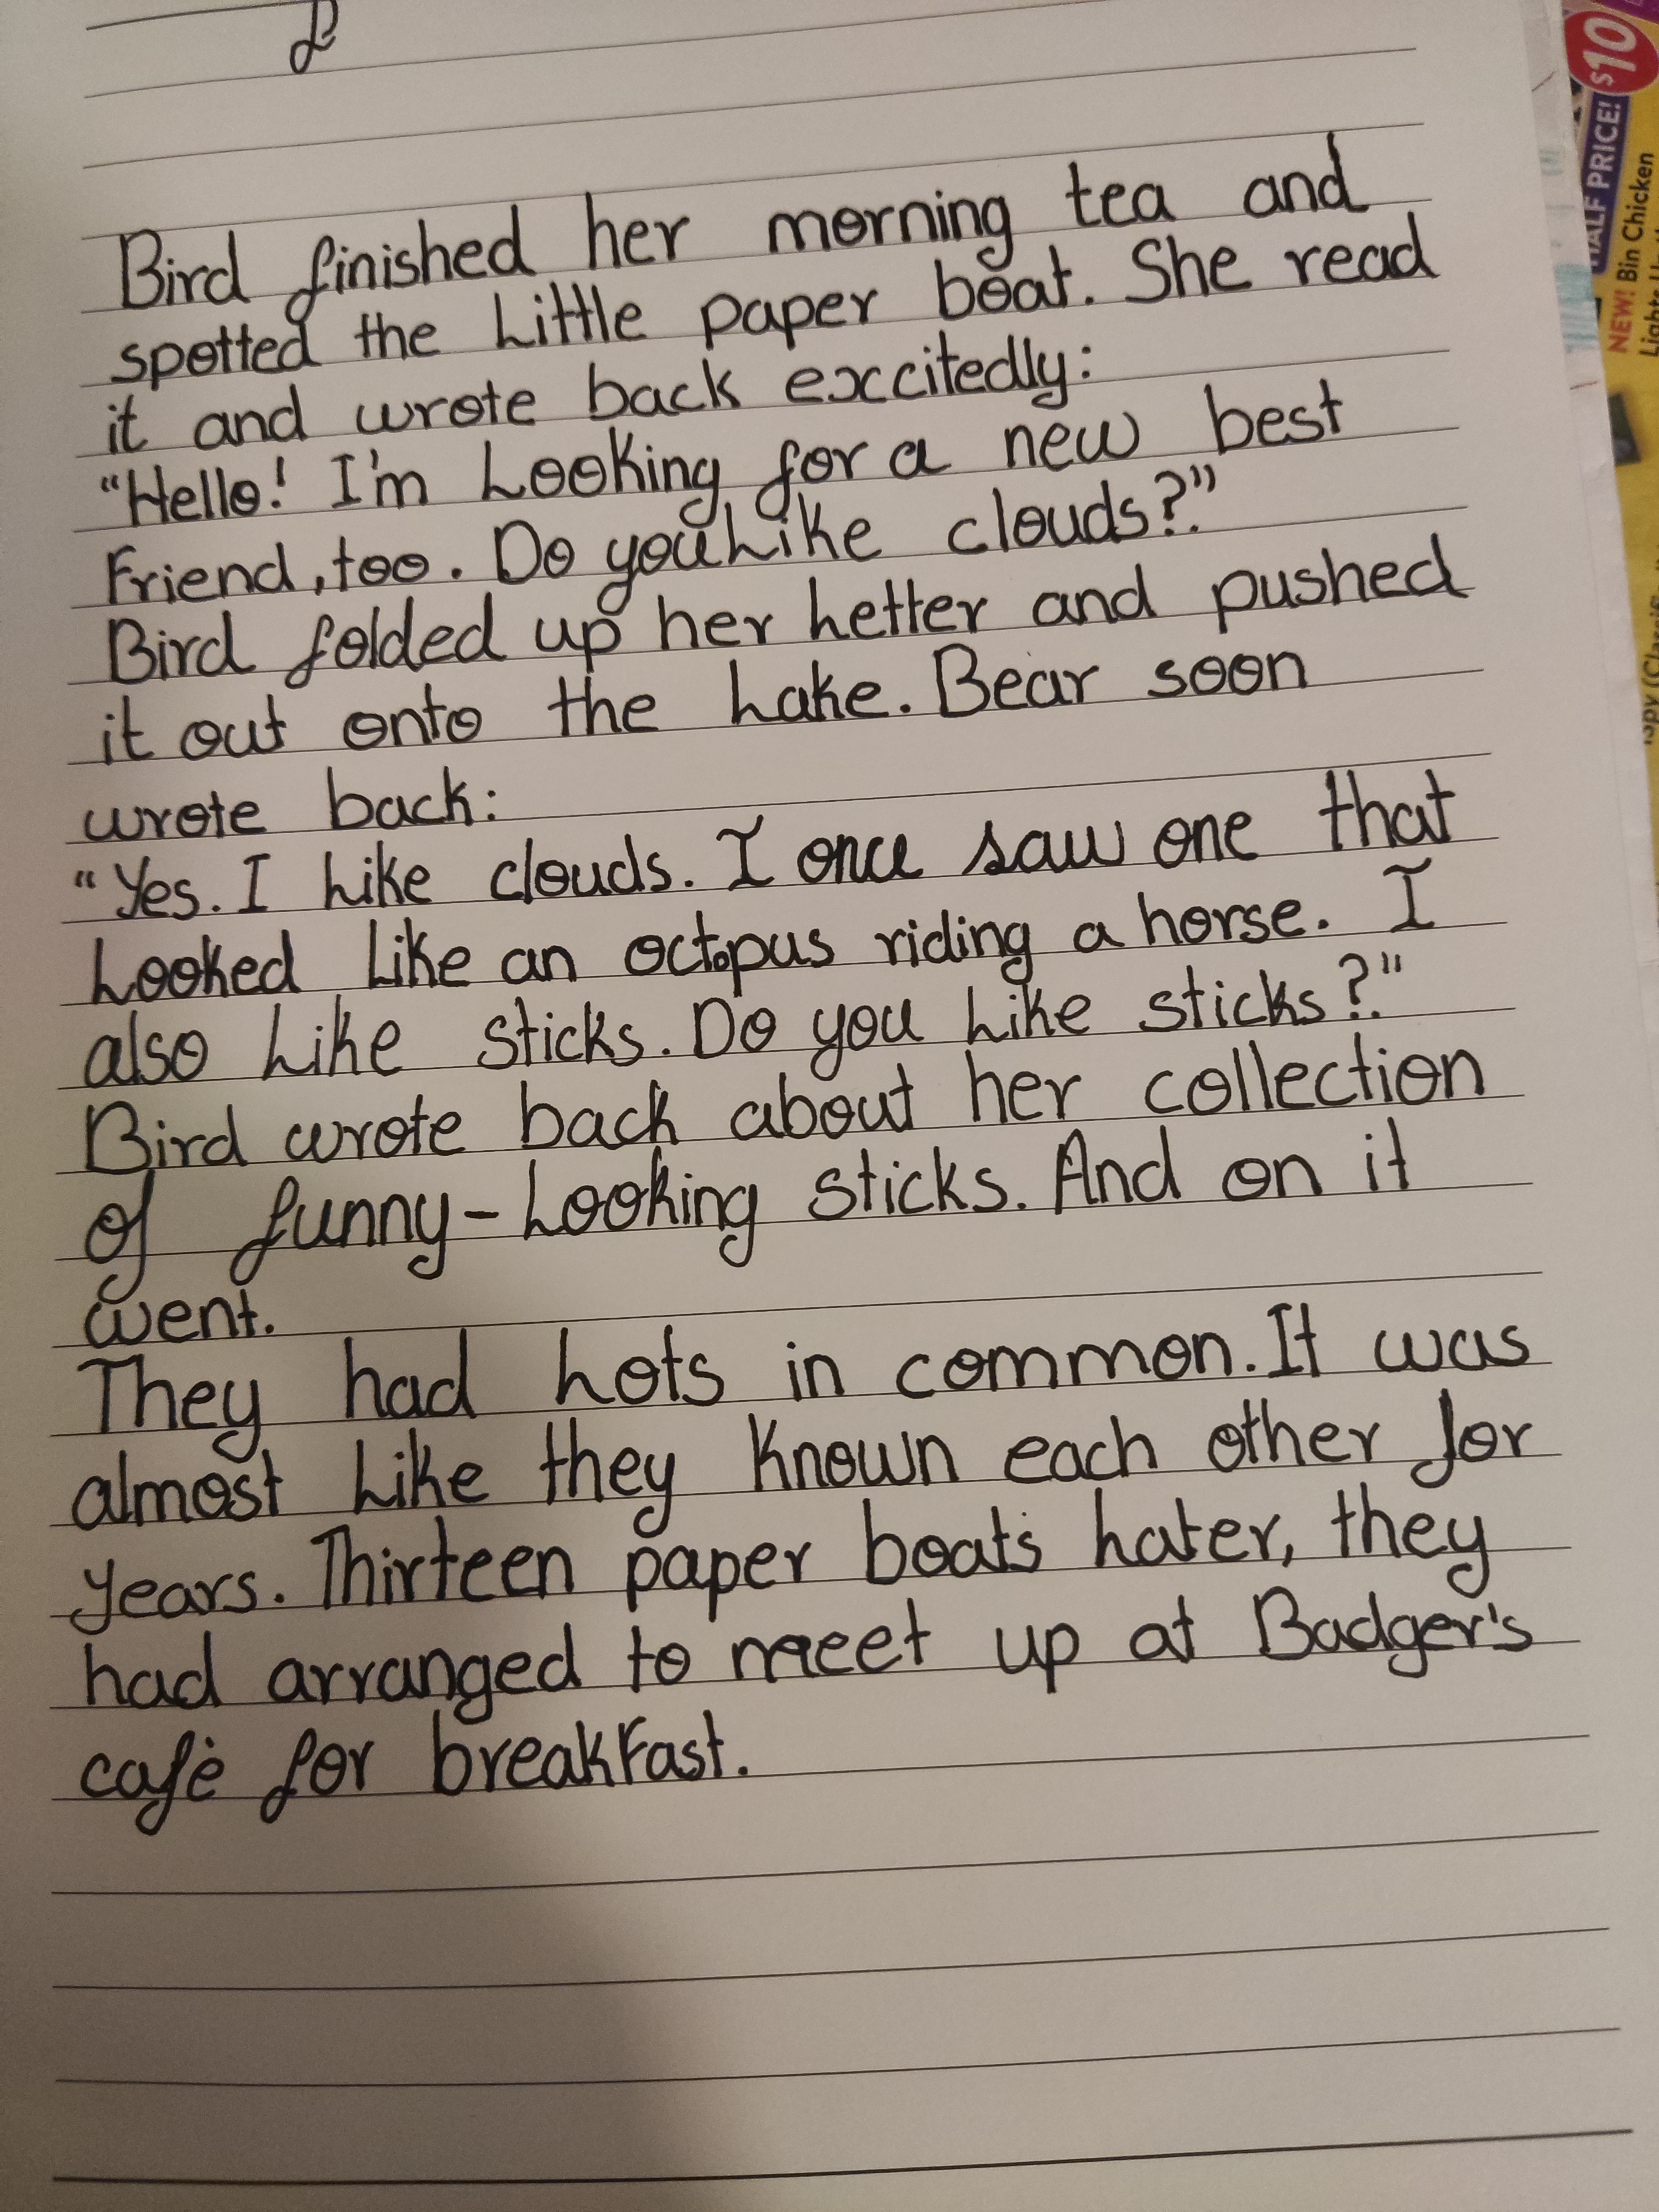 Bird finished her morning tea and
spotted the Little paper boat. She read
it and wrote back excitedly:
"Hello! I'm Looking for a new best
Friend, too. Do you Like clouds?"
Bird folded up her Letter and pushed
it out onto the Lake. Bear soon
wrote back:
"Yes. I Like clouds. I once saw one that
Looked Like an octopus riding a horse. I
also Like sticks. Do you Like sticks?"
Bird wrote back about her collection
of funny-Looking sticks. And on it
went.
They had Lots in common. It was
almost Like they Known each other for
years. Thirteen paper boats Later, they
had arranged to meet up at Badger's
cafè for breakFast.
$10
HALF PRICE!
NEW! Bin Chicken